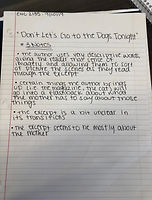 "Don't Let's Go to the Dogs Tonight"
* 3 Notes
• the author uses very descriptive words,
giving the reader that sense of
imagery and allowing them to sort
of picture the scenes as they read
through the excerpt
• certain things the author brings
up (i.e. the magazine, the cat) will
go into a flashback about what
the mother has to say about those
things
• the excerpt is a bit unclear in
its transitions
• the excerpt seems to be mostly about
the mother